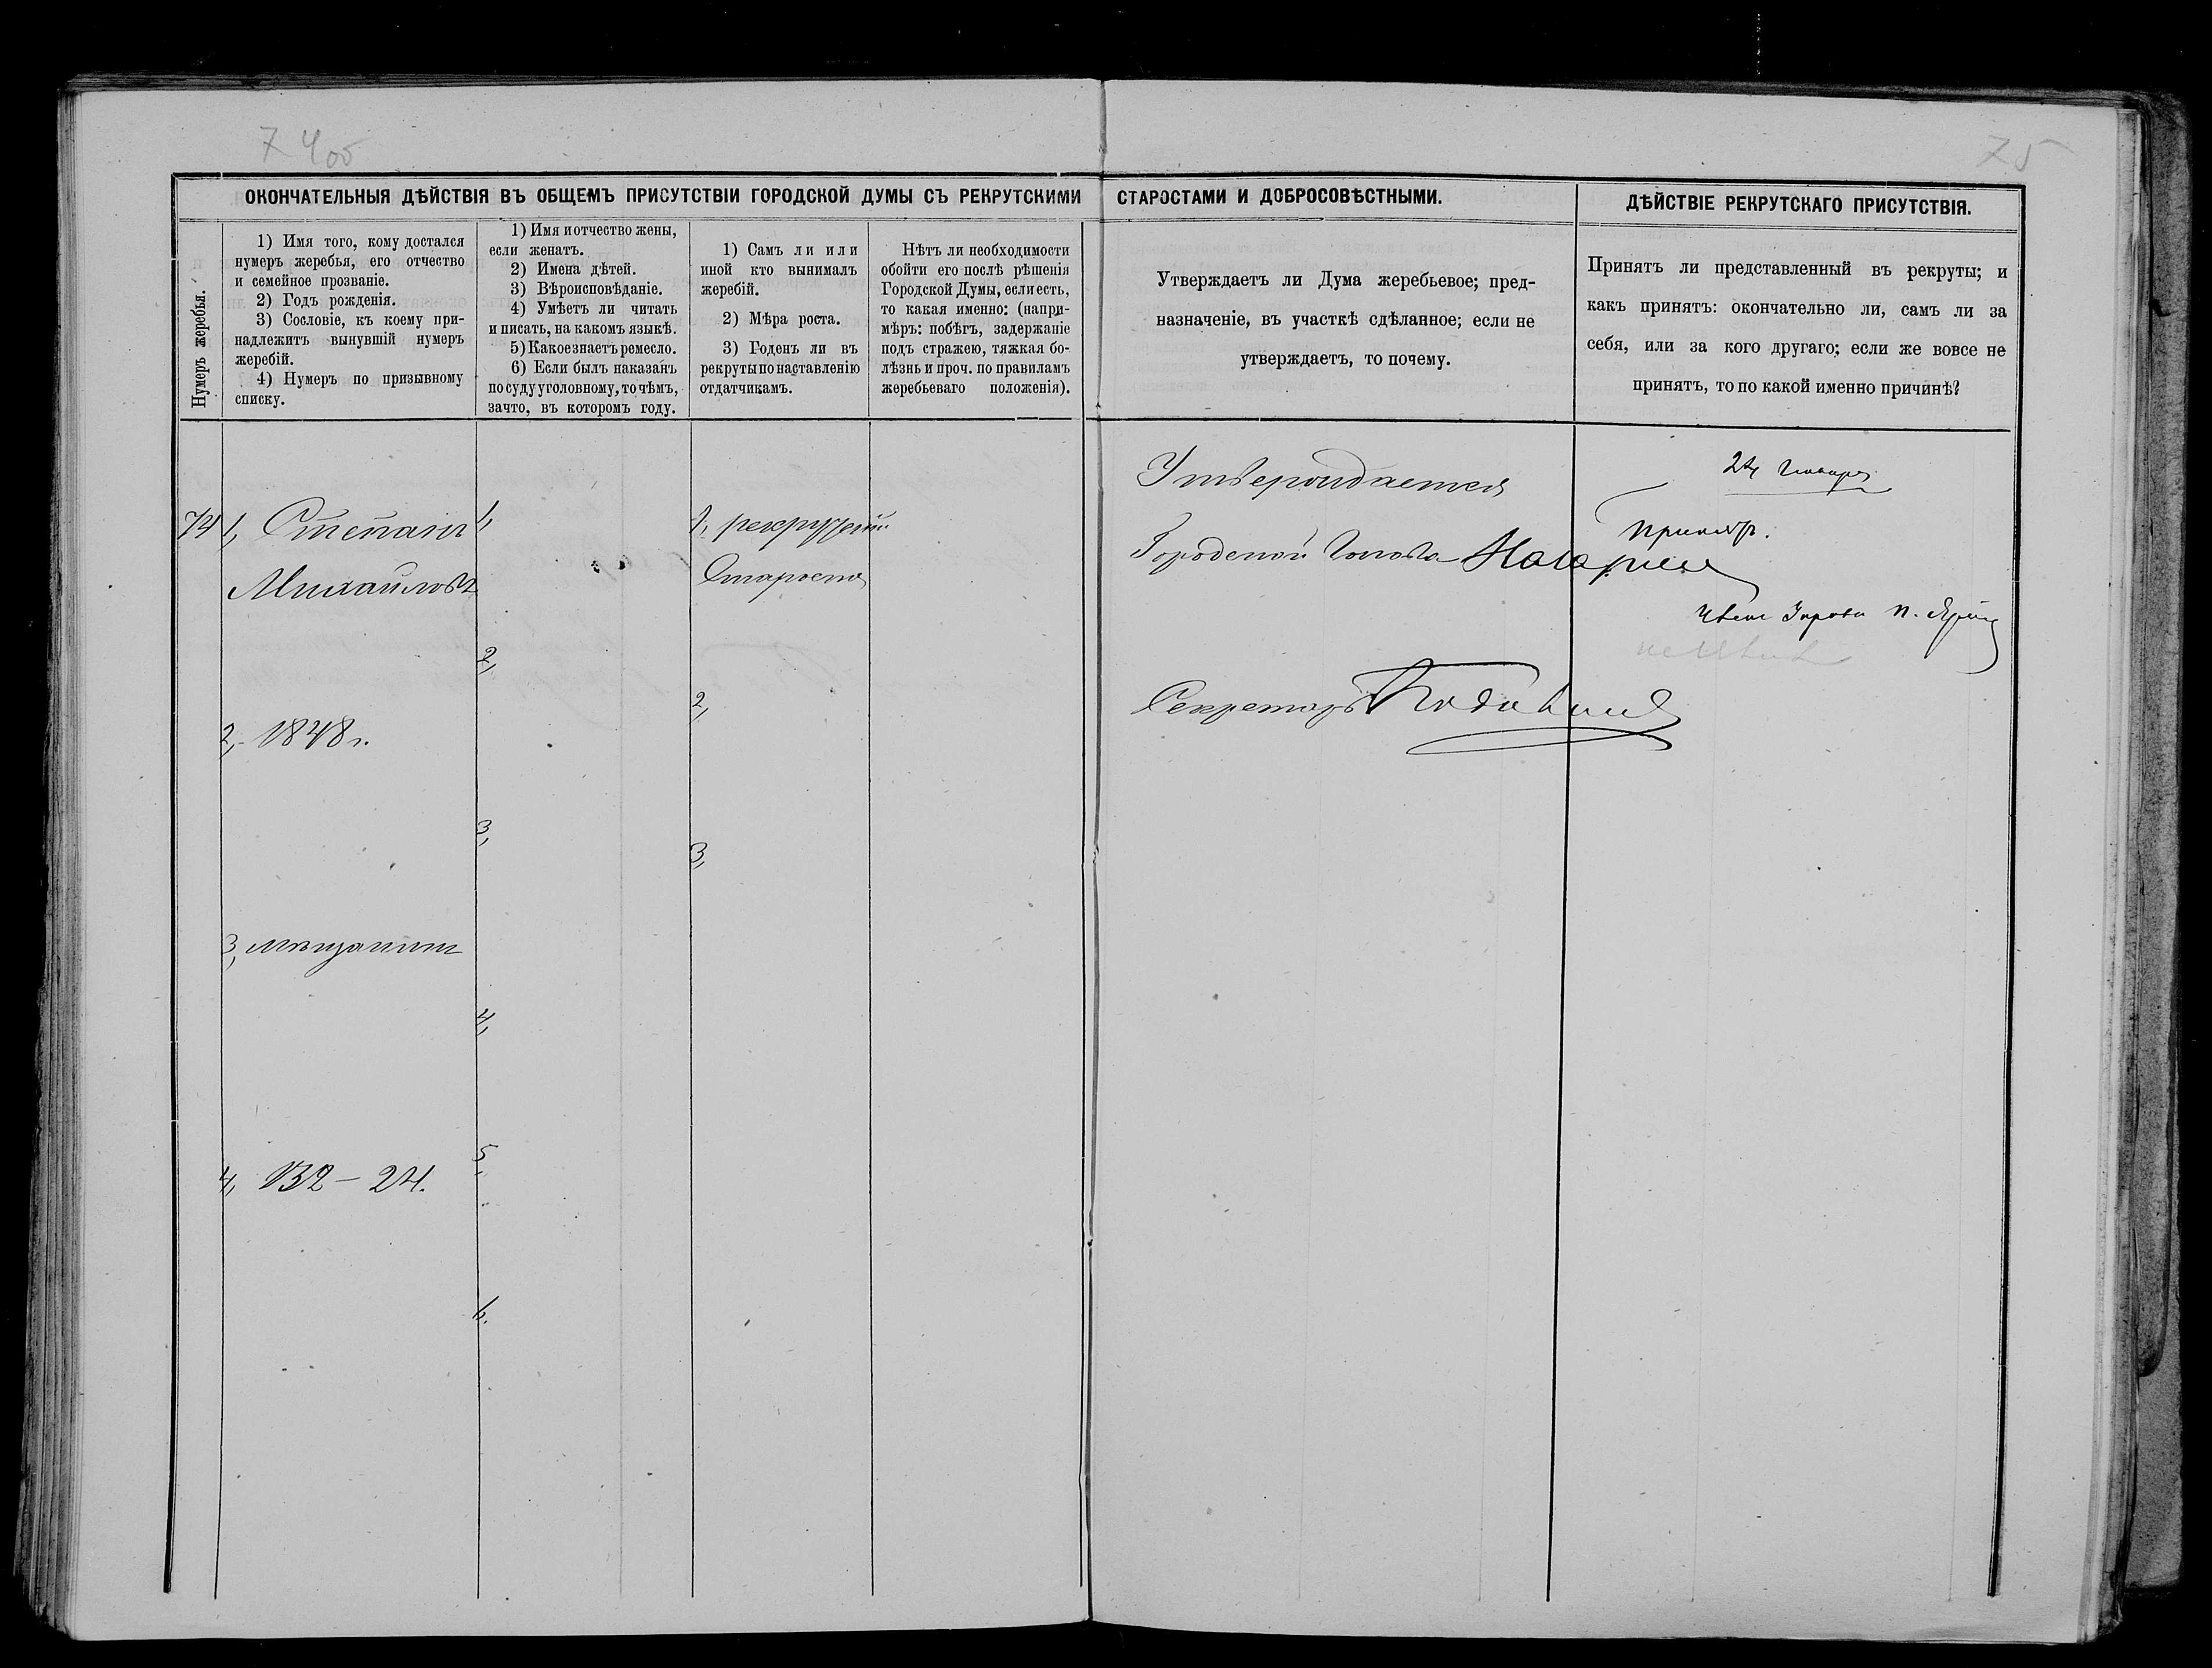 7 4об
75
ОКОНЧАТЕЛЬНЫЯ ДѢЙСТВІЯ ВЪ ОБЩЕМЪ ПРИСУТСТВІИ ГОРОДСКОЙ ДУМЫ СЪ РЕКРУТСКИМИ СТАРОСТАМИ И ДОБРОСОВѢСТНЫМИ.
ДѢЙСТВІЕ РЕКРУТСКАГО ПРИСУТСТВІЯ.
Нумеръ жеребья.
1) Имя того, кому достался
нумеръ жеребья, его отчество
и семейное прозваніе.
2) Годъ рожденія.
3) Сословіе, къ коему при-
надлежитъ вынувшій нумеръ
жеребій.
4) Нумеръ по призывному
списку.
1) Имя и отчество жены,
если женатъ.
2) Имена дѣтей.
3) Вѣроисповѣданіе.
4) Умѣетъ ли читать
и писать, на какомъ языкѣ.
5) Какое знаетъ ремесло.
6) Если былъ наказанъ
по суду уголовному, то чѣмъ,
за что, въ которомъ году.
1) Самъ ли или
иной кто вынималъ
жеребій.
2) Мѣра роста.
3) Годенъ ли въ
рекруты по наставленію
отдатчикамъ.
Нѣтъ ли необходимости
обойти его послѣ рѣшенія
Городской Думы, если есть,
то какая именно: (напри-
мѣръ: побѣгъ, задержаніе
подъ стражею, тяжкая бо-
лѣзнь и проч. по правиламъ
жеребьеваго положенія).
Утверждаетъ ли Дума жеребьевое; пред-
назначеніе, въ участкѣ сдѣланное; если не
утверждаетъ, то почему.
Принятъ ли представленный въ рекруты; и
какъ принятъ: окончательно ли, самъ ли за
себя, или за кого другаго; если же вовсе не
принятъ, то по какой именно причинѣ?
74
1, Степанъ
Михайловъ
2, 1848 г.
3, мѣщанинъ
4, 132 – 24.
1,
2,
3,
4,
5,
6.
1, рекрутскій
Староста
2,
3,
Утверждается
Городской Голова
Секретарь
24 Января
Принятъ.